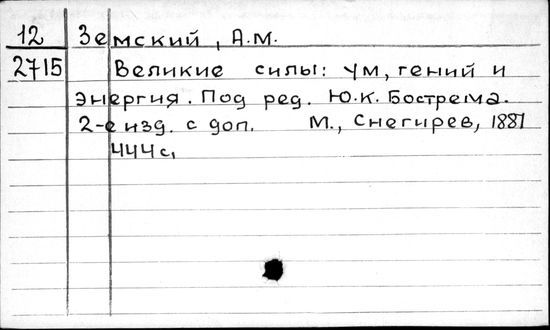 12 Земский, А.М.
2715 Великие силы: ум, гений и
энергия. Под ред. Ю.К. Бострема.
2-е изд. с доп. М., Снегирев, 1881
444 с,